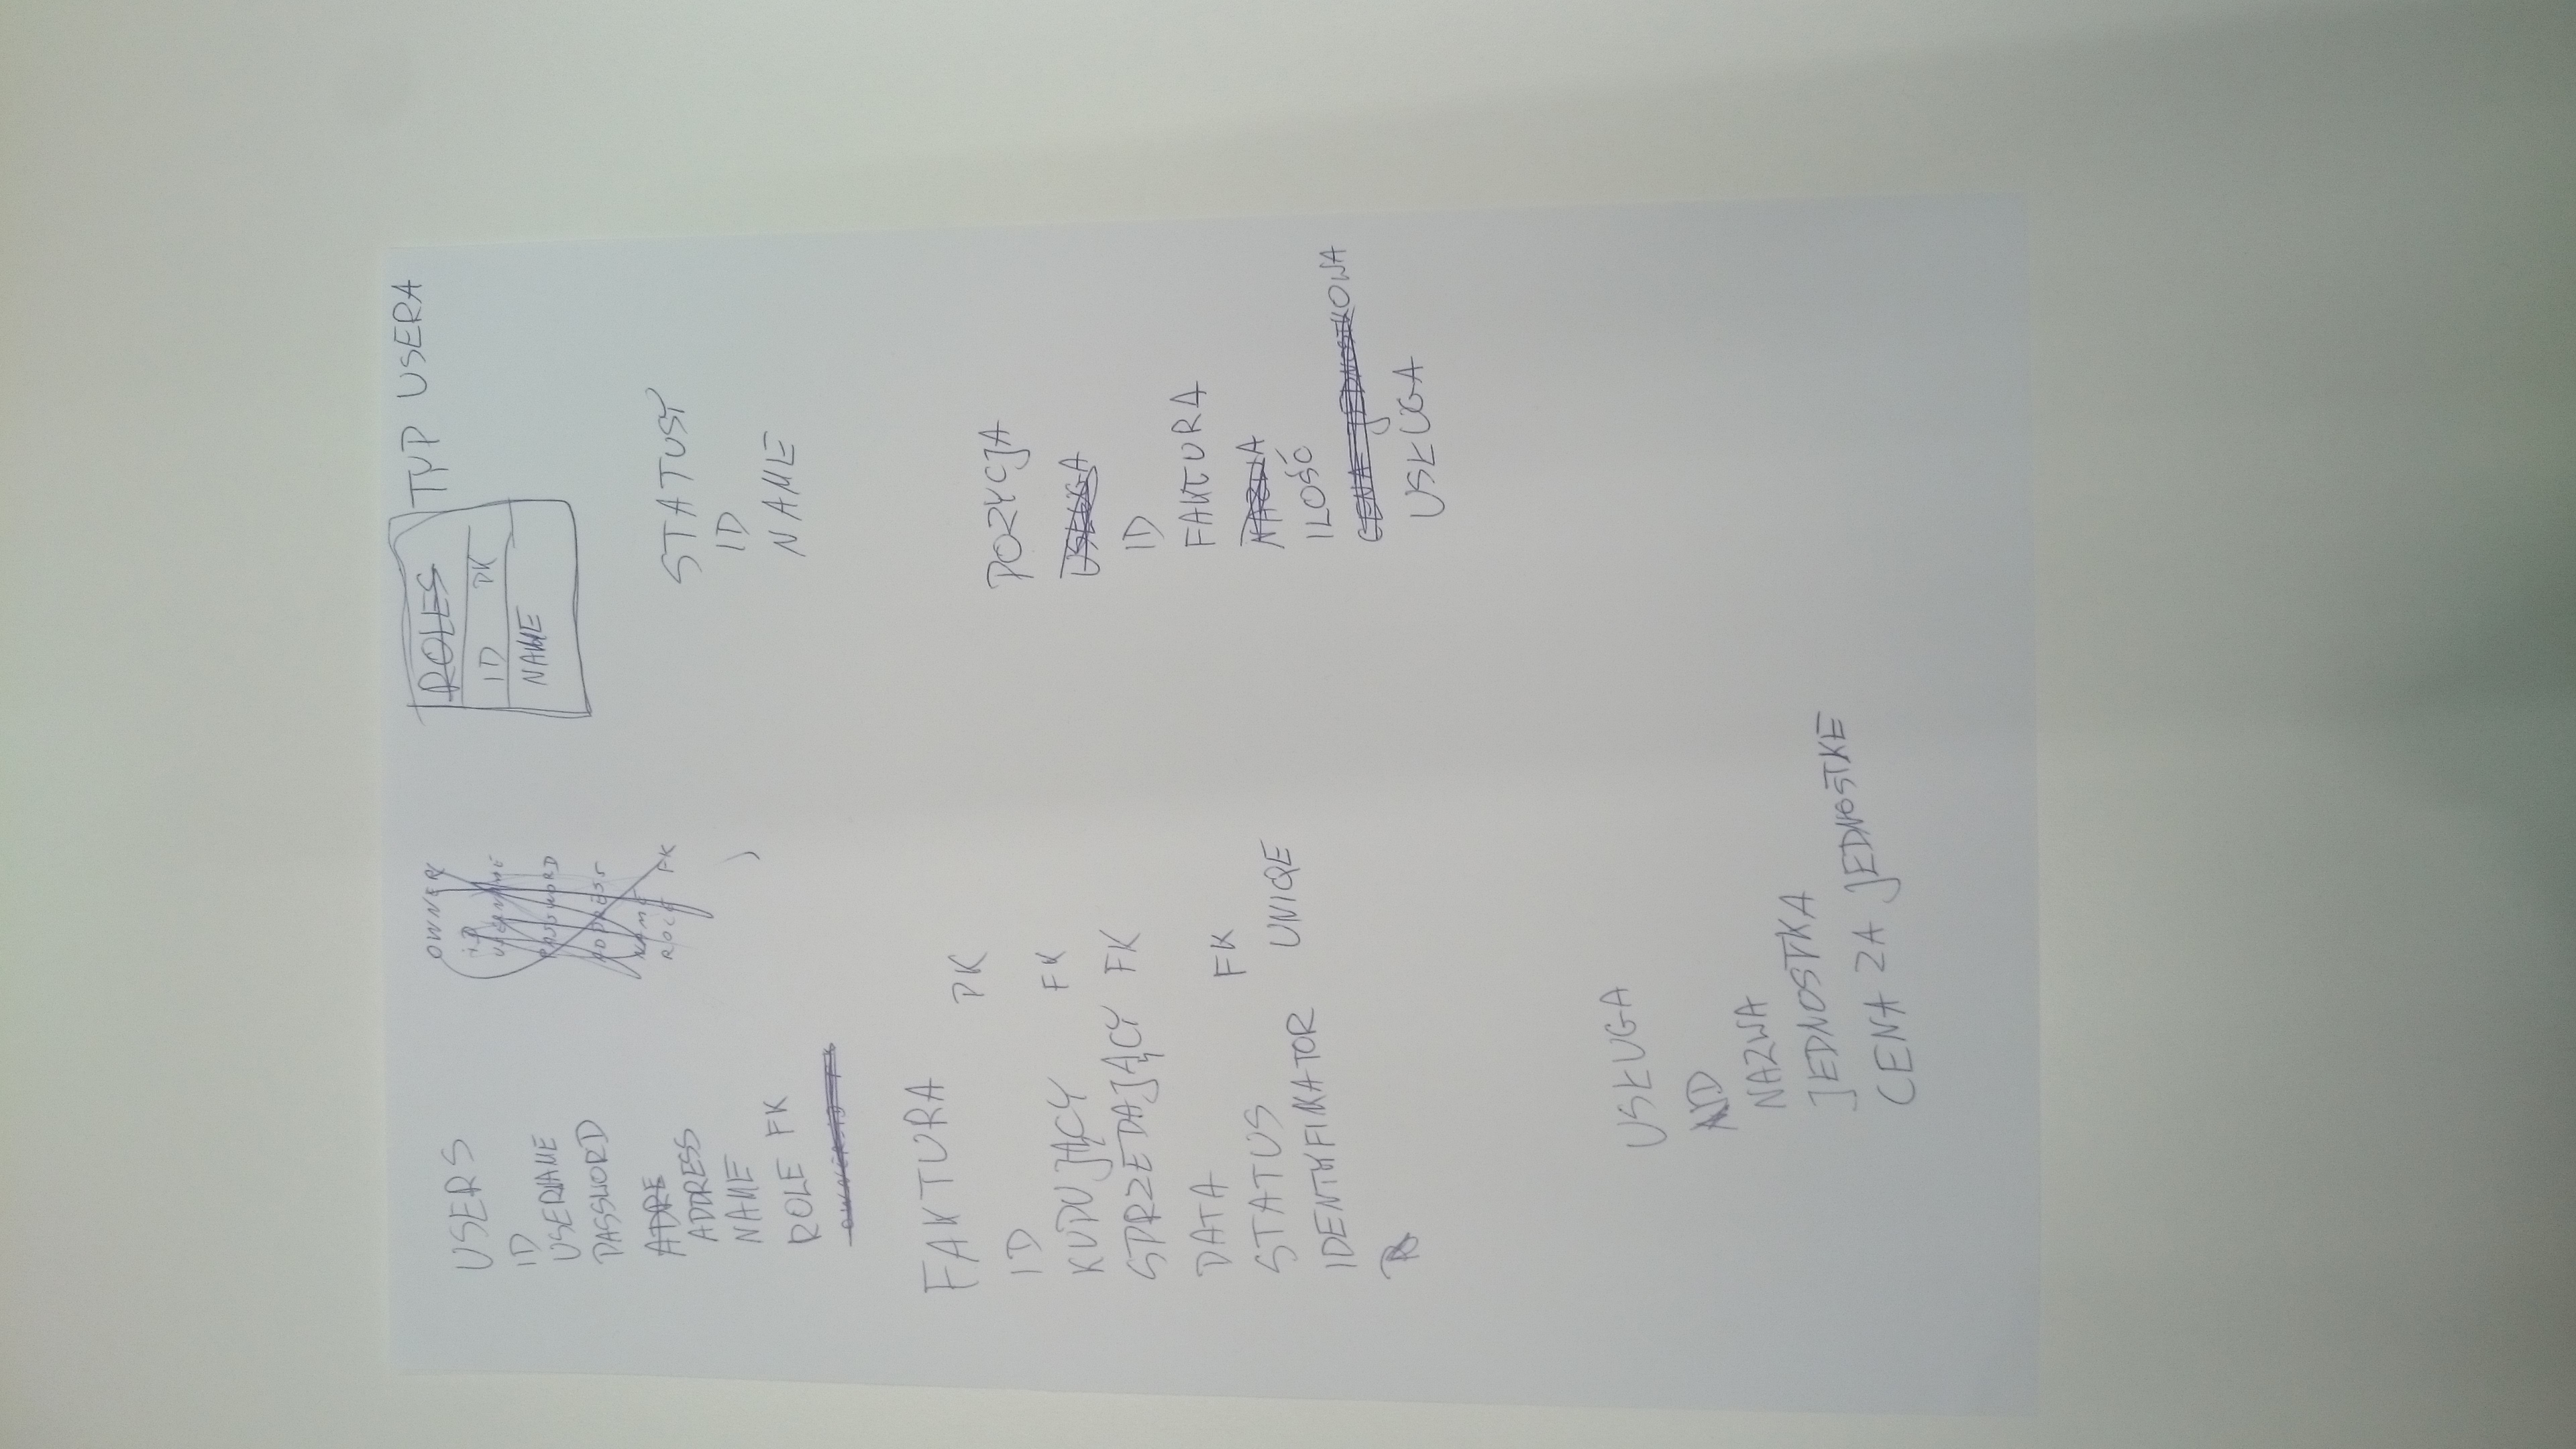 USERS
ID
USERNAME
PASSWORD
ADRE
ADDRESS
NAME
ROLE FK
OWNER
ID
USERNAME
PASSWORD
ADDRESS
NAME
ROLE FK
ROLES
ID PK
NAME
TYP USERA
STATUSY
ID
NAME
FAKTURA
ID PK
KUPUJĄCY FK
SPRZEDAJĄCY FK
DATA
STATUS FK
IDENTYFIKATOR UNIQE
POZYCJA
USŁUGA
ID
FAKTURA
NAZWA
ILOŚĆ
CENA JEDNOSTKOWA
USŁUGA
USŁUGA
ID
NAZWA
JEDNOSTKA
CENA ZA JEDNOSTKE